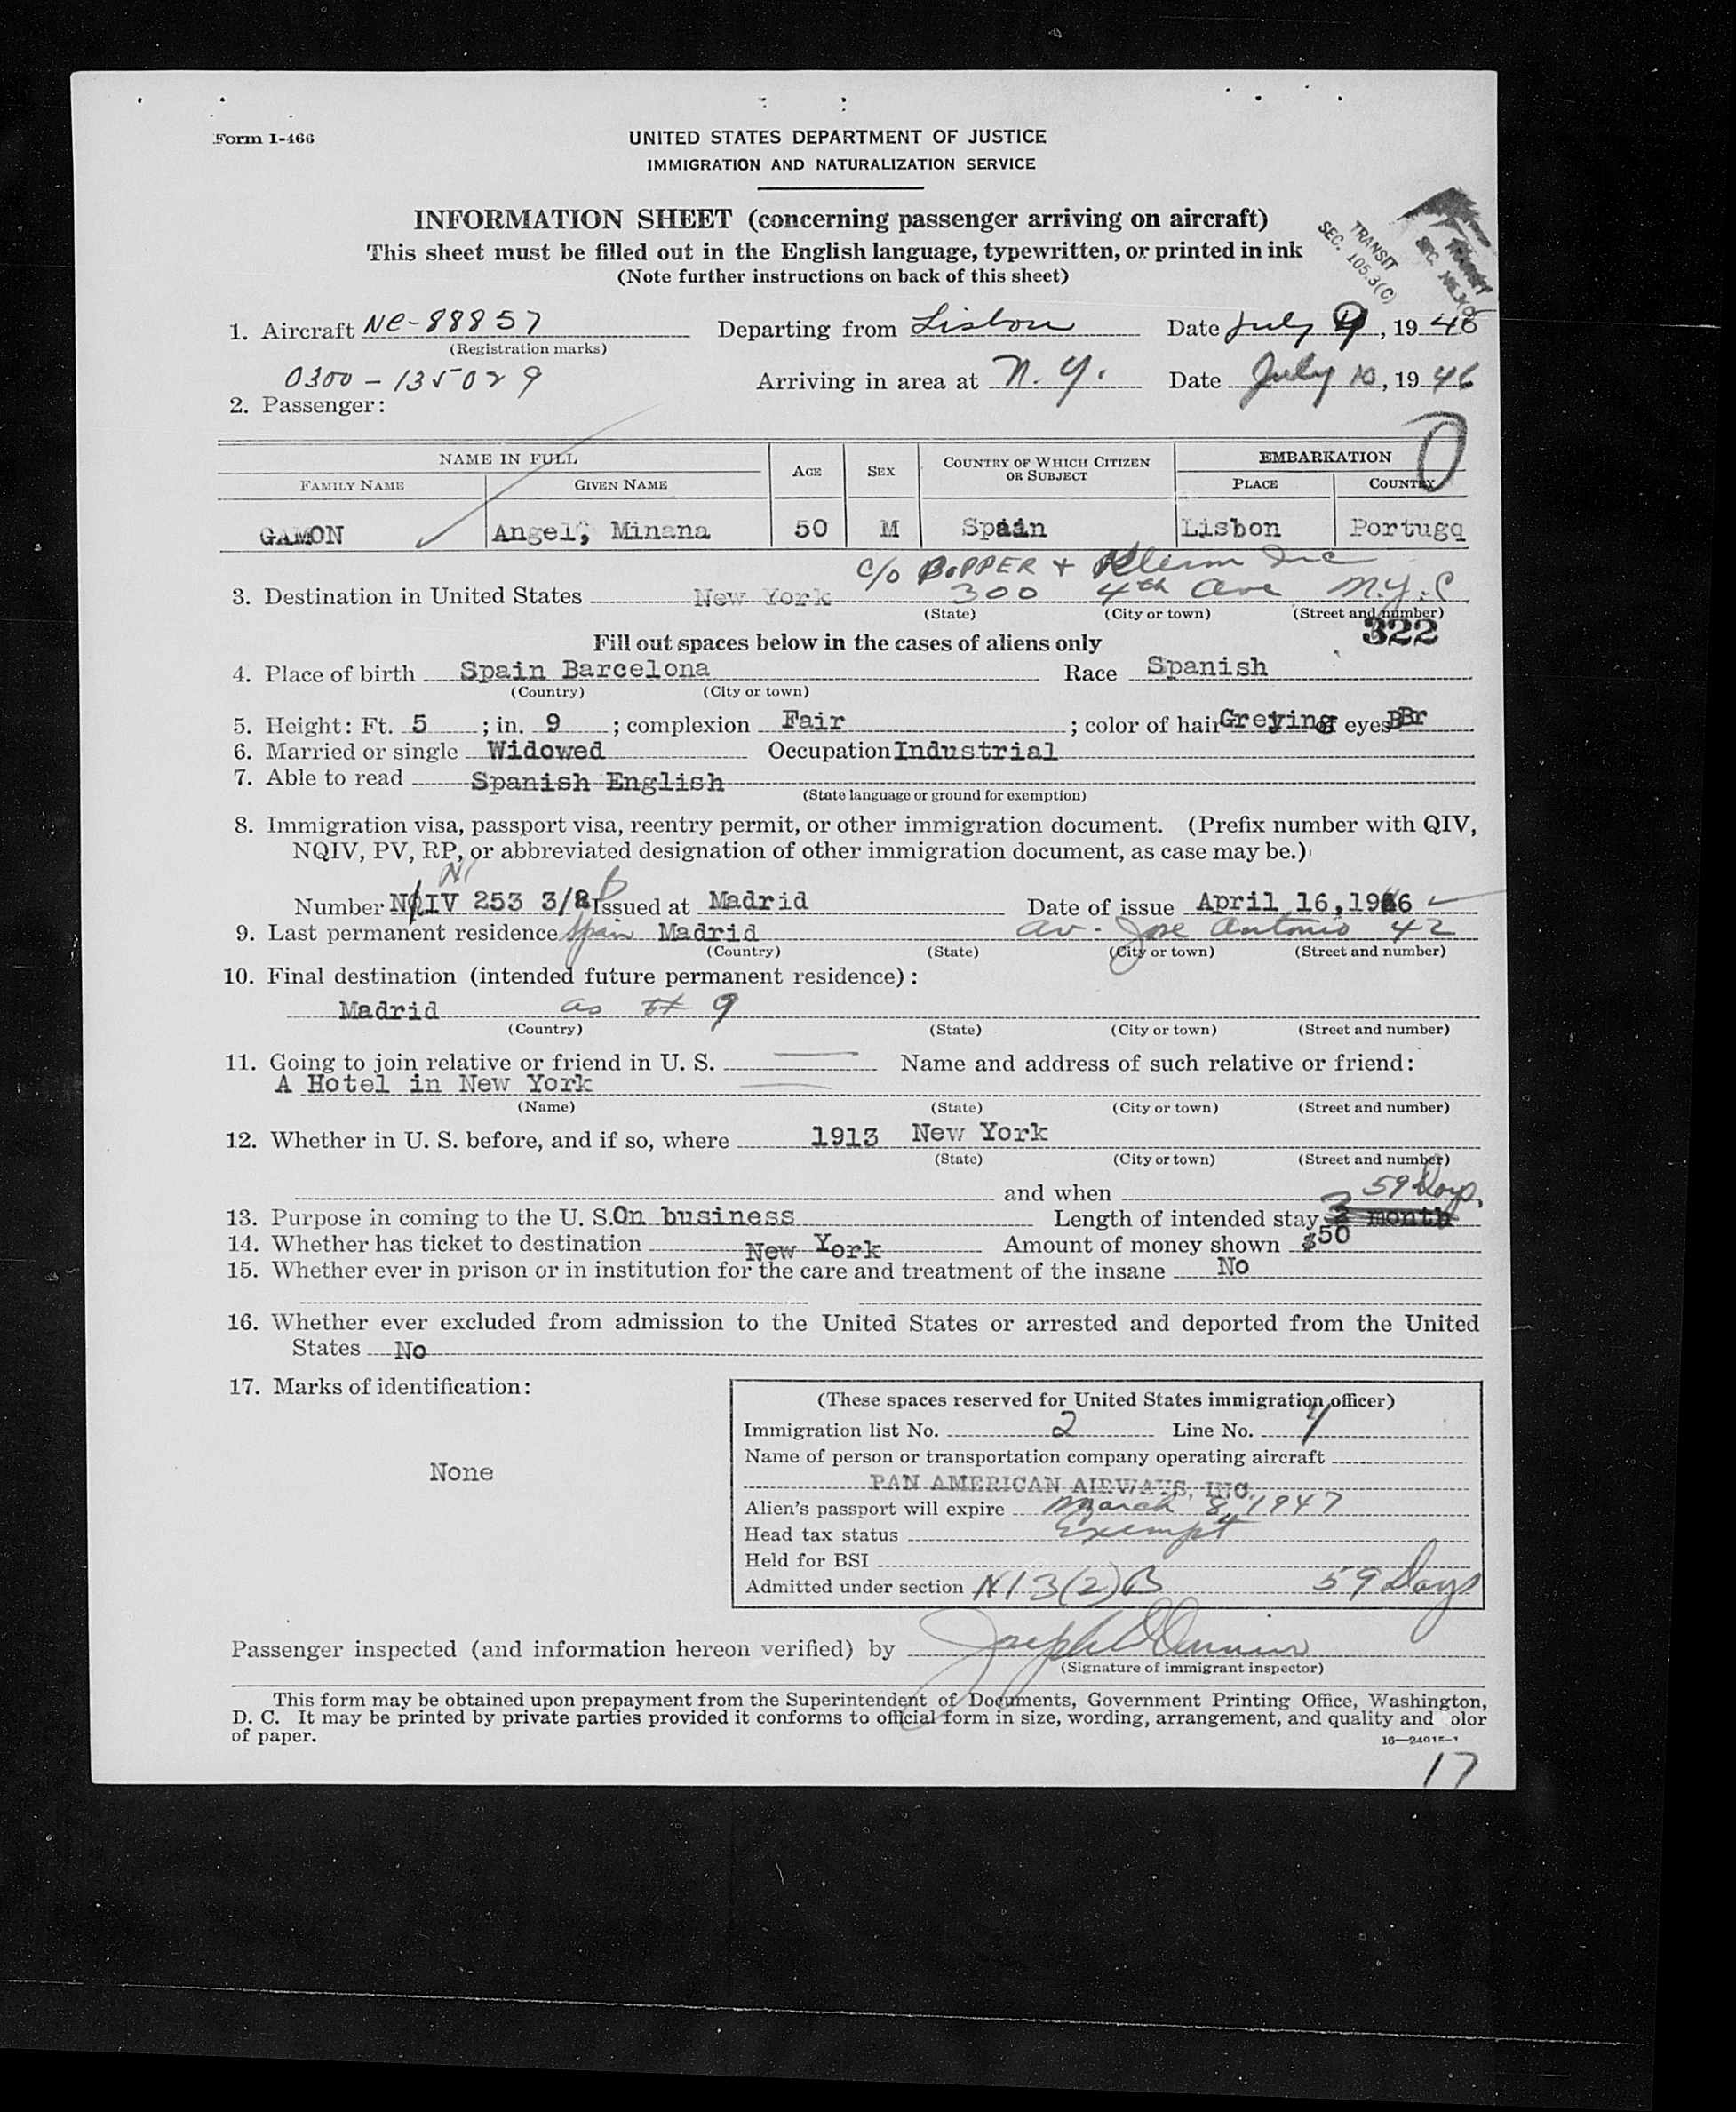 Form I-466
UNITED STATES DEPARTMENT OF JUSTICE
IMMIGRATION AND NATURALIZATION SERVICE
INFORMATION SHEET (concerning passenger arriving on aircraft)
This sheet must be filled out in the English language, typewritten, or printed in ink
(Note further instructions on back of this sheet)
TRANSIT
SEC. 105.3(C)
1. Aircraft NC-88857 Departing from Lisbon Date July 9, 1946
(Registration marks)
0300-135029 Arriving in area at N.Y. Date July 10, 1946
2. Passenger:
NAME IN FULL AGE SEX COUNTRY OF WHICH CITIZEN OR SUBJECT EMBARKATION
FAMILY NAME GIVEN NAME PLACE COUNTRY
GAMON Angel, Minana 50 M Spain Lisbon Portugq
c/o
3. Destination in United States New York 300 4th Ave N.Y.C
(State) (City or town) (Street and number)
322
Fill out spaces below in the cases of aliens only
4. Place of birth Spain Barcelona Race Spanish
(Country) (City or town)
5. Height: Ft. 5; in. 9; complexion Fair; color of hair Greying of eyes Br
6. Married or single Widowed Occupation Industrial
7. Able to read Spanish English
(State language or ground for exemption)
8. Immigration visa, passport visa, reentry permit, or other immigration document. (Prefix number with QIV,
NQIV, PV, RP, or abbreviated designation of other immigration document, as case may be.)
Number IV 253 3/ Issued at Madrid Date of issue April 16, 1946
9. Last permanent residence Spain Madrid Av. Jose Antonio 42
(Country) (State) (City or town) (Street and number)
10. Final destination (intended future permanent residence):
Madrid as # 9
(Country) (State) (City or town) (Street and number)
11. Going to join relative or friend in U. S. Name and address of such relative or friend:
A Hotel in New York
(Name) (State) (City or town) (Street and number)
12. Whether in U. S. before, and if so, where 1913 New York
(State) (City or town) (Street and number)
and when 59 Days
13. Purpose in coming to the U. S. On business Length of intended stay month
14. Whether has ticket to destination New York Amount of money shown $50
15. Whether ever in prison or in institution for the care and treatment of the insane No
16. Whether ever excluded from admission to the United States or arrested and deported from the United
States No
17. Marks of identification:
None
(These spaces reserved for United States immigration officer)
Immigration list No. 2 Line No.
Name of person or transportation company operating aircraft
PAN AMERICAN AIRWAYS, INC.
Alien's passport will expire March 8, 1947
Head tax status Exempt
Held for BSI
Admitted under section 3(2)B 59 Days
Passenger inspected (and information hereon verified) by
(Signature of immigrant inspector)
This form may be obtained upon prepayment from the Superintendent of Documents, Government Printing Office, Washington,
D. C. It may be printed by private parties provided it conforms to official form in size, wording, arrangement, and quality and olor
of paper.
17